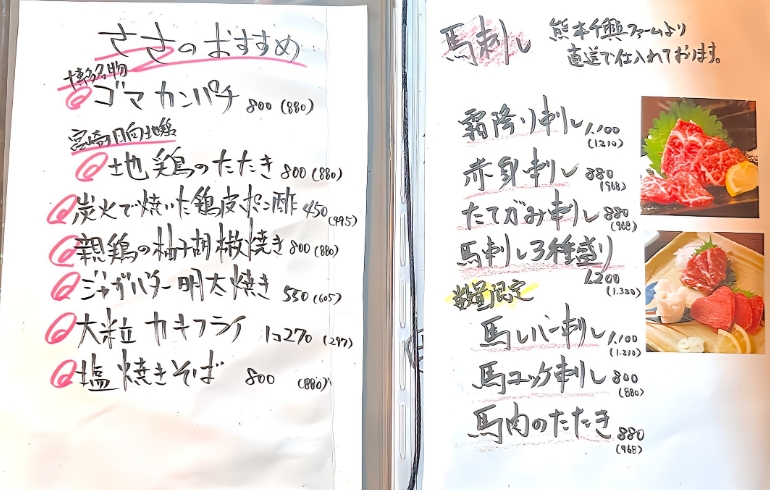 ささのおすすめ
博多名物
ゴマカンパチ 800 (880)
宮崎日向地鶏
地鶏のたたき 800 (880)
炭火で焼いた鶏皮ポン酢 450 (495)
親鶏の柚子胡椒焼き 800 (880)
ジャガバター明太焼き 550 (605)
大粒カキフライ 1コ270 (297)
塩焼きそば 800 (880)
馬刺し 熊本千興ファームより
直送で仕入れております。
霜降り刺し 1,100
(1.210)
赤身刺し 880
(968)
たてがみ刺し 880
(968)
馬刺し3種盛り
1,200
(1.320)
数量限定
馬レバー刺し 1,100
(1.210)
馬ユッケ刺し 800
(880)
馬肉のたたき 880
(968)